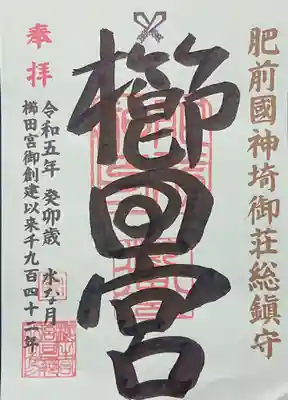 肥前國神埼御荘総鎮守
櫛田宮
奉拝
令和五年 癸卯歳 水な月
櫛田宮御創建以来千九百四十二年